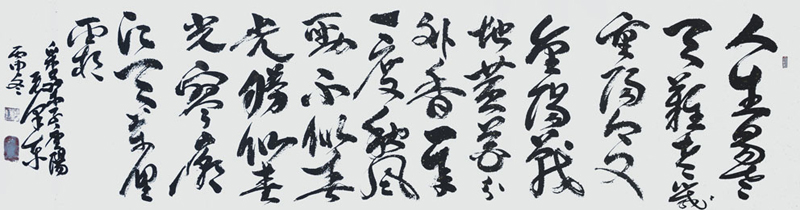 人生易老
天難老歲
重陽今又
重陽戰
地黄花分
外香一年
一度秋風
勁不似春
光勝似春
光寥廓
江天萬里
霜
采桑子重陽
丙申冬